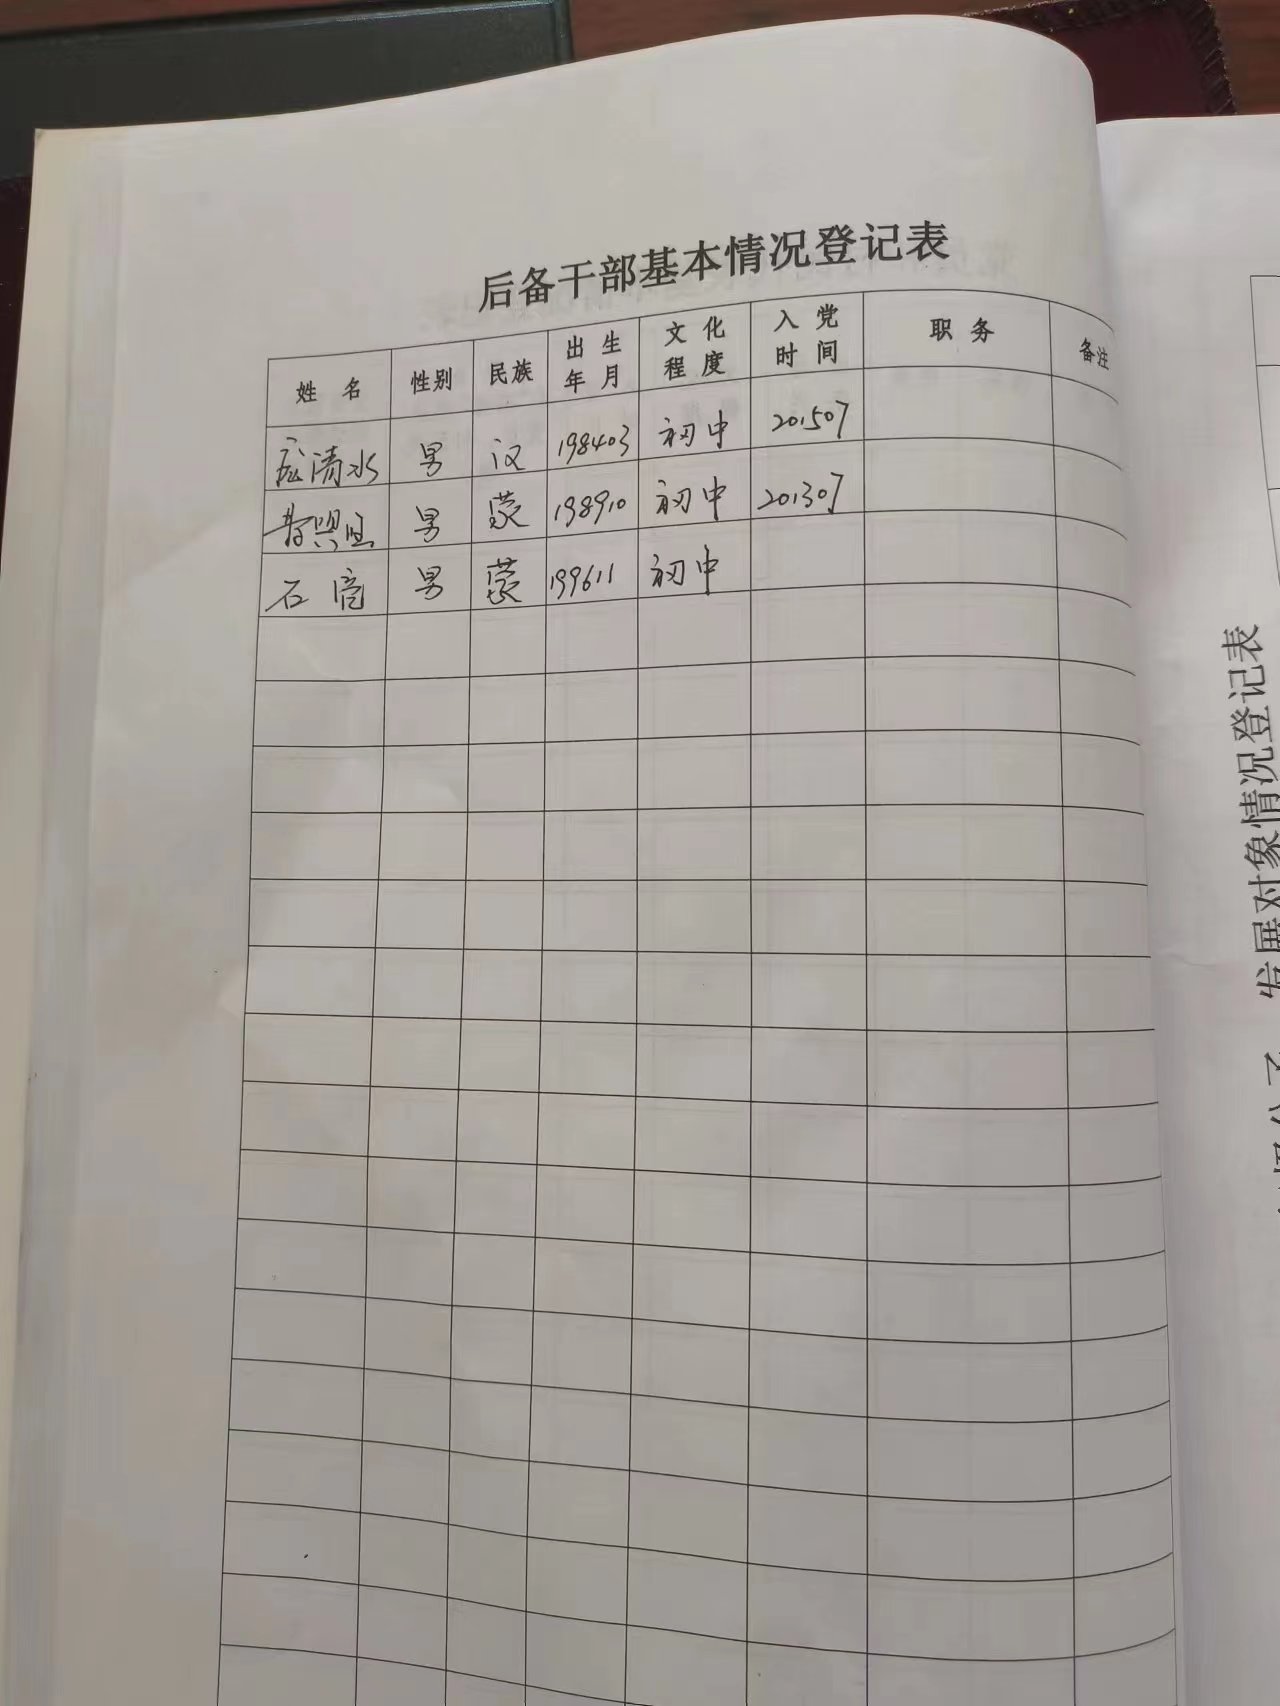 后备干部基本情况登记表
姓 名 性别 民族 出生年月 文化程度 入党时间 职务 备注
清水 男 汉 198403 初中 201507
男 蒙 198910 初中 201307
石亮 男 蒙 199611 初中
发展对象情况登记表